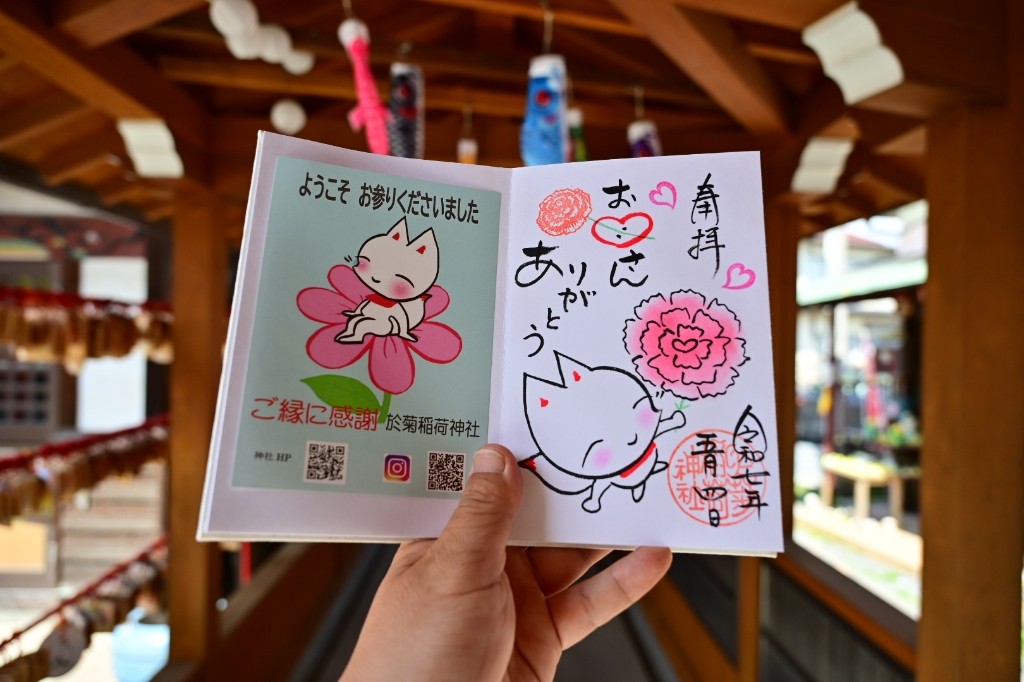 ようこそ お参りくださいました
ご縁に感謝 於菊稲荷神社
神社 HP
奉拝
お
さん
ありがとう
令和七年
五月四日